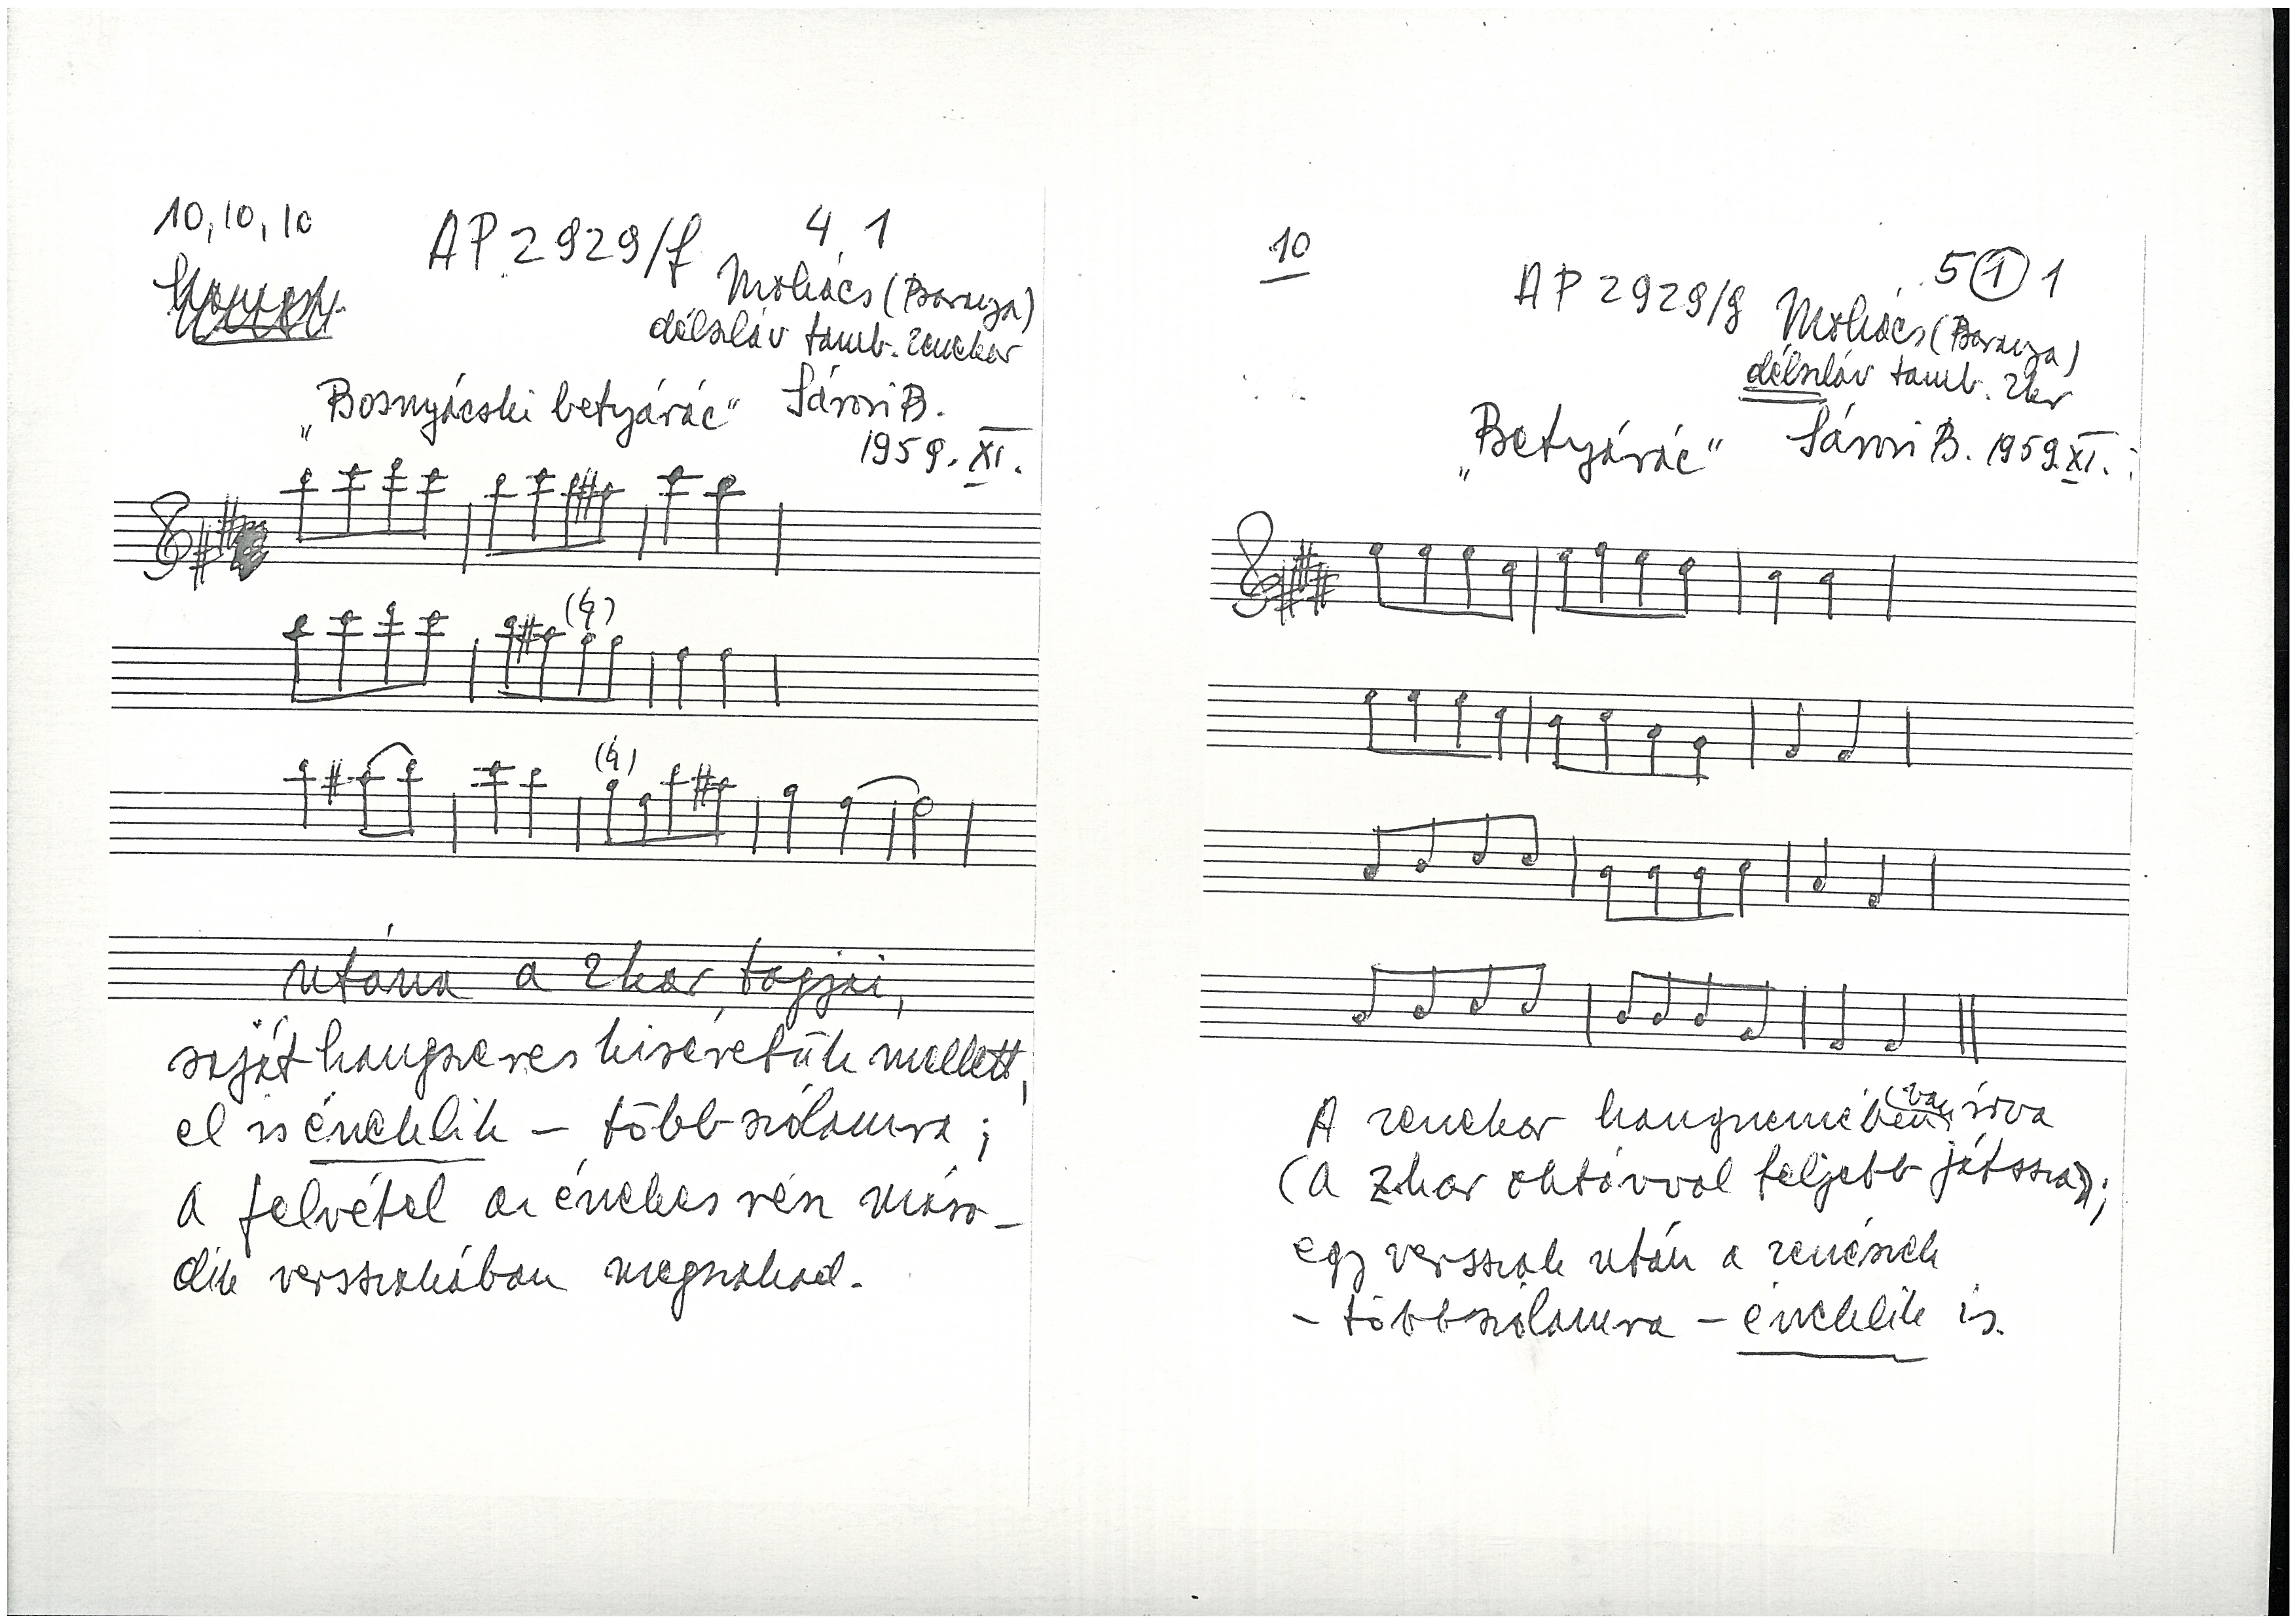 10, 10, 10
AP 2929/f
4 1
Mohács (Baranya)
délszláv tamb. zenekar
„Bosnyácski betyárác" Sárosi B.
1959. XI.
(♮)
(♮)
utána a zkar tagjai,
saját hangszeres kiséretük mellett,
el is éneklik – többszólamra;
a felvétel az énekes rész máso-
dik versszakában megszakad.
10
5 1 1
AP 2929/g Mohács (Baranya)
délszláv tamb. zkar
„Betyárác" Sárosi B. 1959. XI.
A zenekar hangnemében (van) írva
(a zkar oktávval feljebb játssza);
egy versszak után a zenészek
– többszólamra – éneklik is.